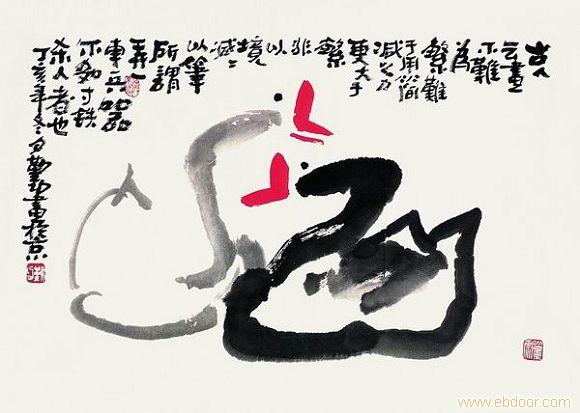 古人
云畫
不難
為
繁難
于用簡
減之力
更大于
繁
非
以
境
減々
以筆
所謂
弄一
車兵器
不如寸鉄
殺人者也
丁亥年冬月勤畫於京
www.ebdoor.com